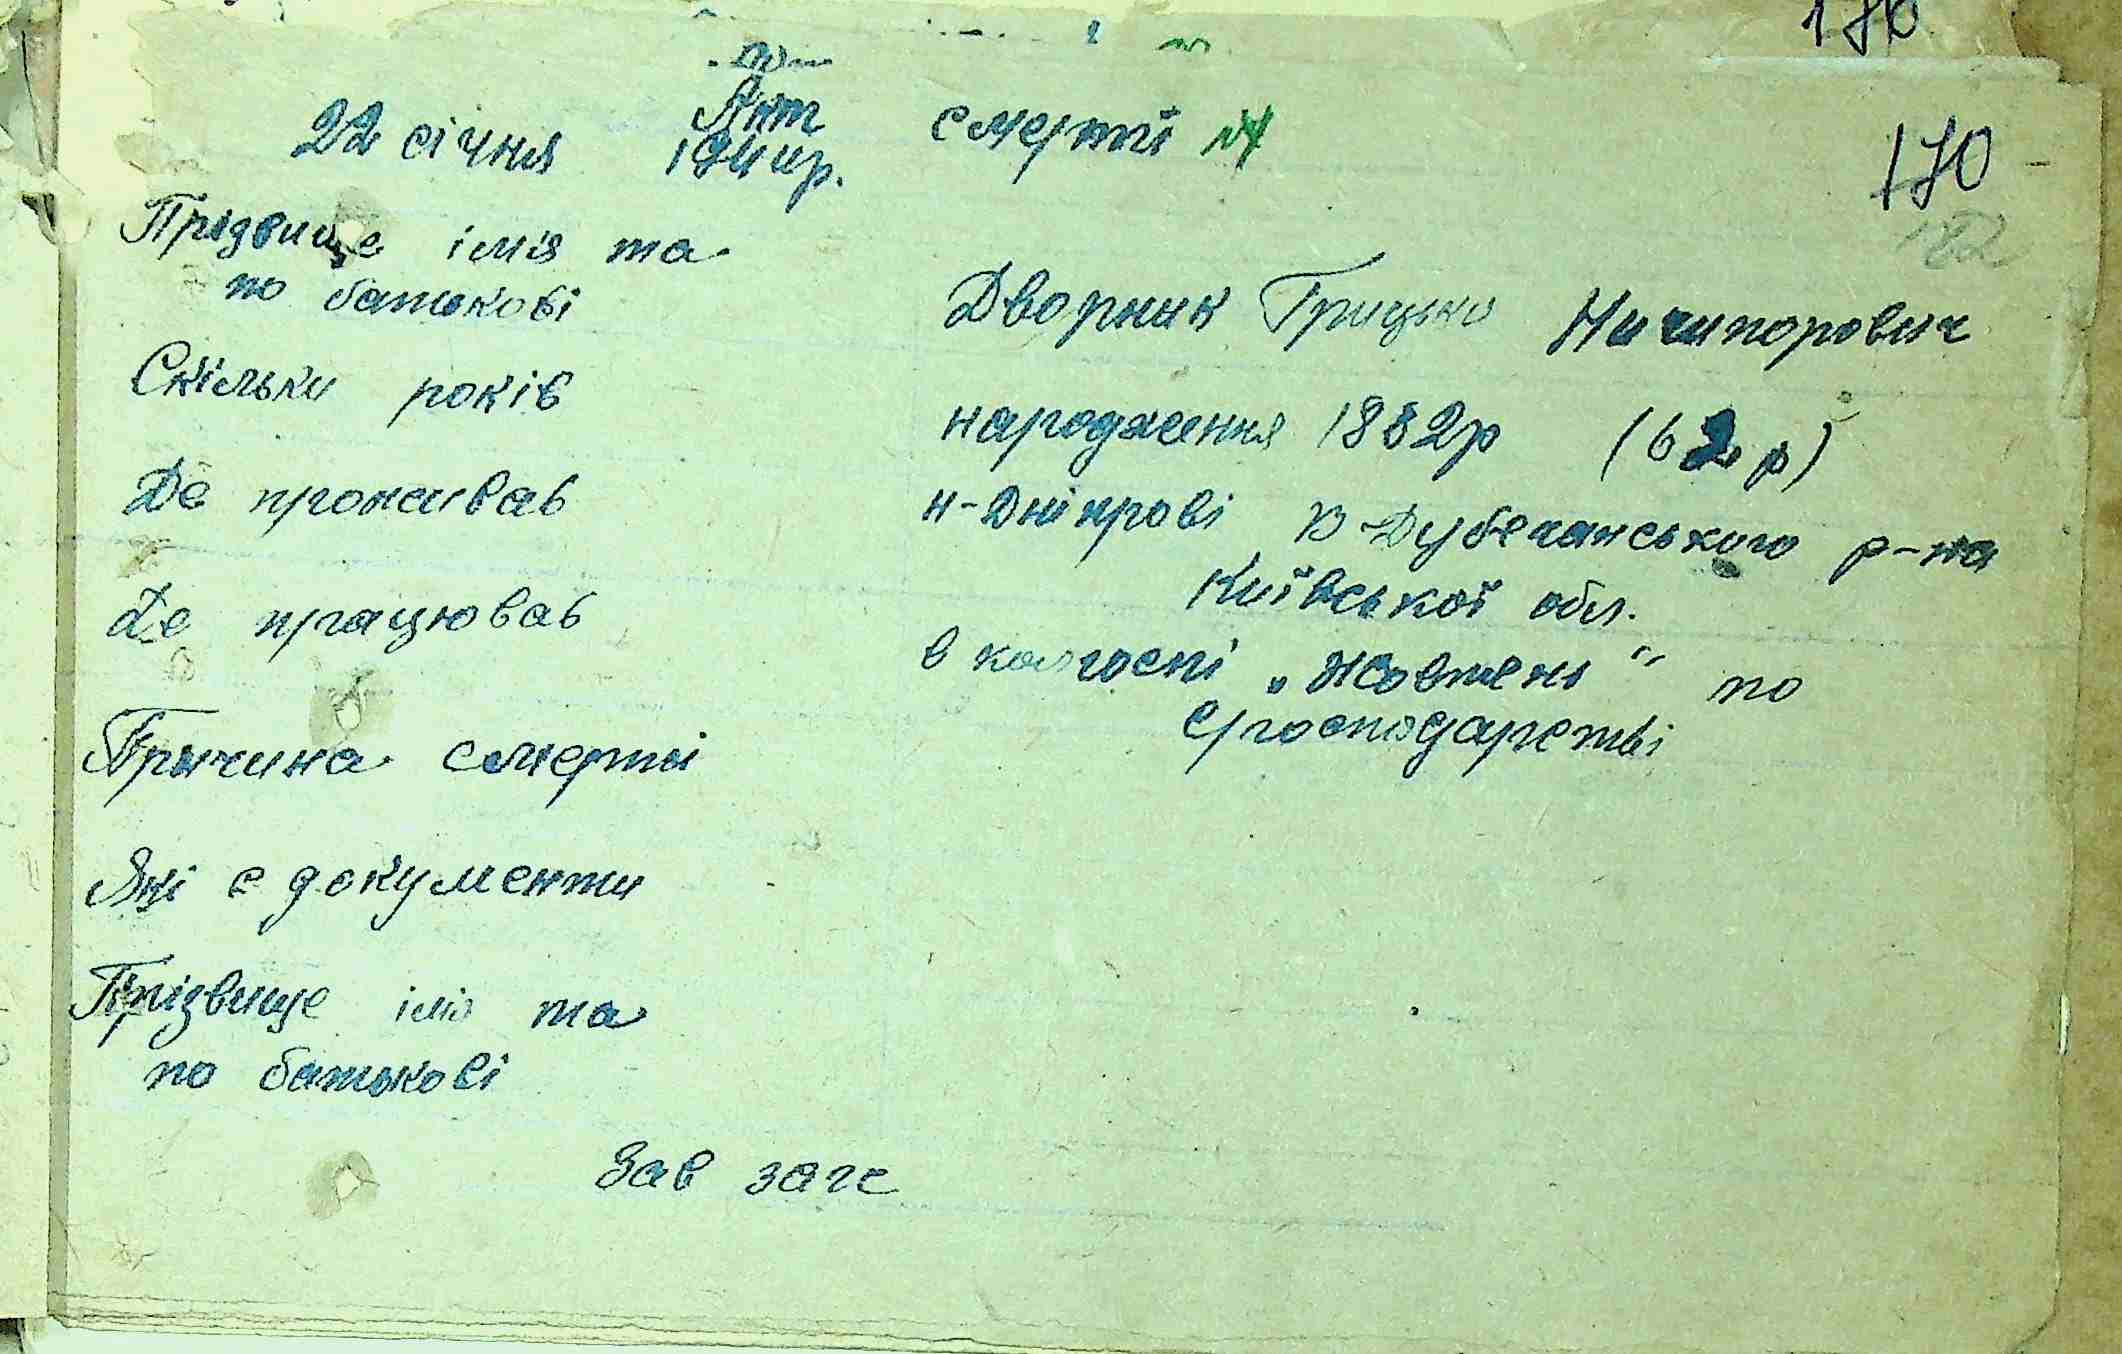 170
Акт смерти №4
22 січня 1944 р.
170
182
Прізвище імія та
по батькові
Дворник Грицько Ничипорович
Скільки років
народження 1882р (62 р)
Де проживав
Н-Дніпрові В-Дубечанського р-на
Київської обл.
Де працював
в колгоспі „Жовтень“ по
с/господарстві
Причина смерти
Які є документи
Прізвище імія та
по батькові
Зав загс